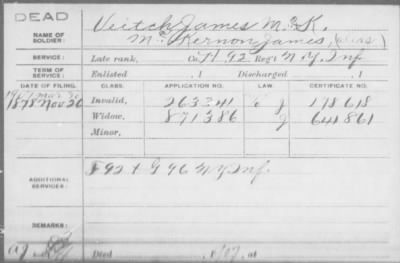 DEAD
Veitch James McK.
NAME OF SOLDIER:
McKernon James, (alias)
SERVICE: Late rank, Co. H 92 Reg't N.Y. Inf
TERM OF SERVICE: Enlisted , 1 Discharged , 1
DATE OF FILING. CLASS. APPLICATION NO. LAW. CERTIFICATE NO.
1878 Nov 20 Invalid, 263341 J 178618
Widow, 871386 J 641861
Minor,
ADDITIONAL SERVICES: F 92 & G 96 N.Y. Inf.
REMARKS:
Died , 1907, at